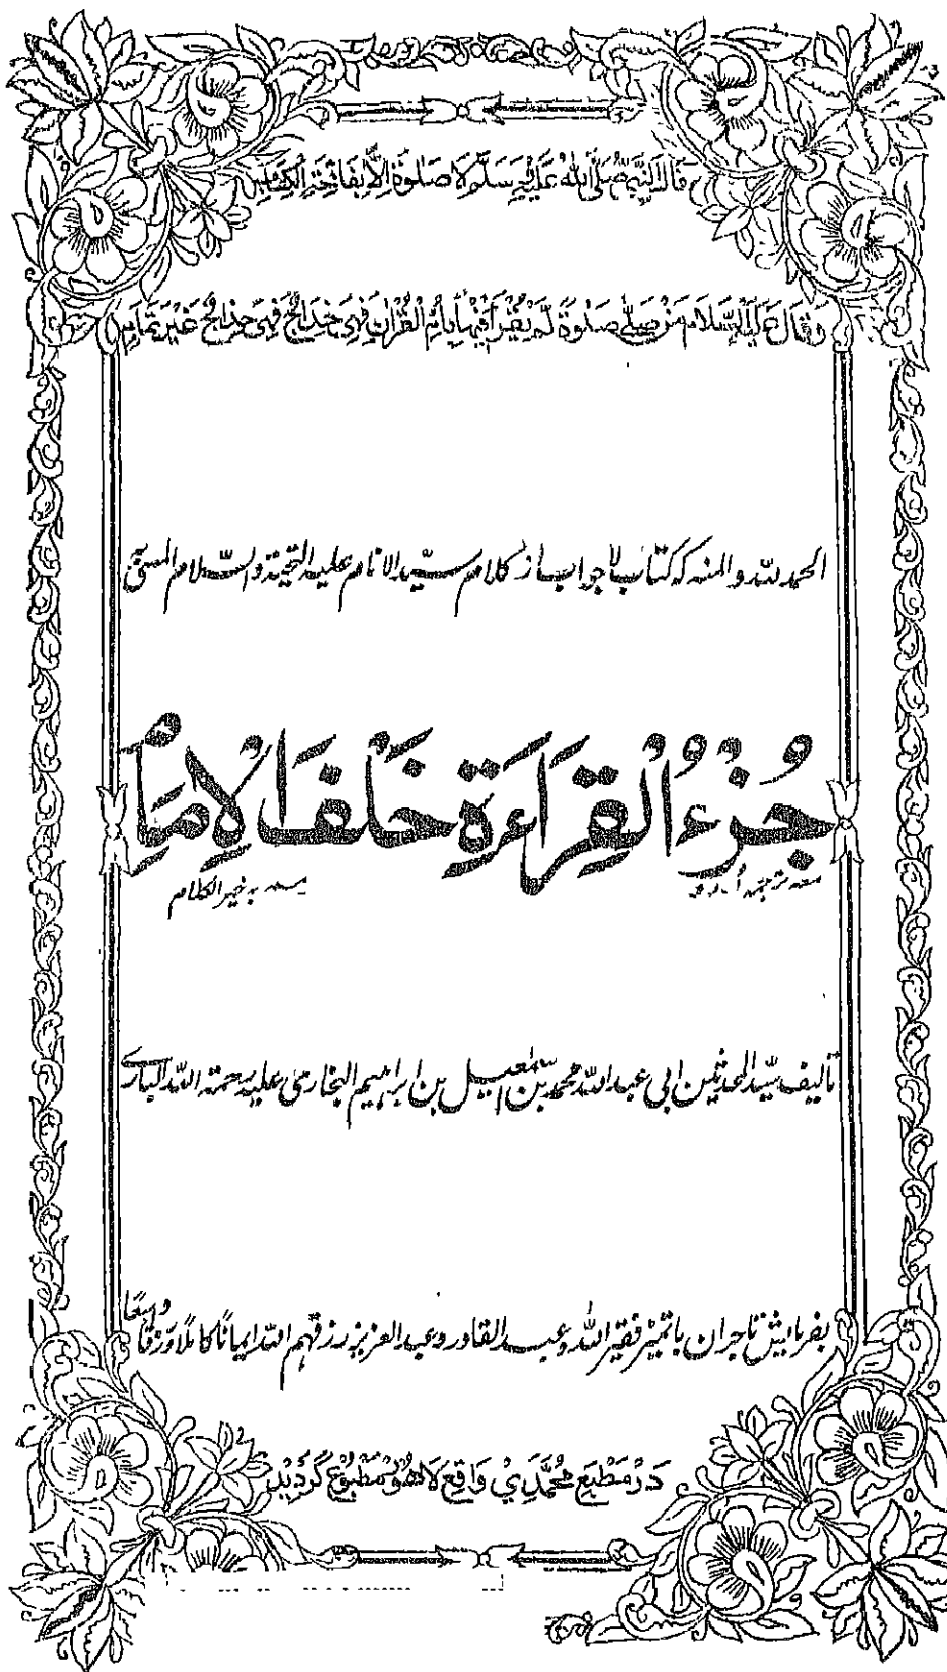 قَالَ النَّبِيُّ صَلَّى اللهُ عَلَيْهِ وَسَلَّمَ لَا صَلٰوةَ اِلَّا بِفَاتِحَةِ الْكِتَابِ
وَقَالَ عَلَيْهِ السَّلَامُ مَنْ صَلّٰى صَلٰوةً لَمْ يَقْرَأْ فِيْهَا بِاُمِّ الْقُرْاٰنِ فَهِيَ خِدَاجٌ فَهِيَ خِدَاجٌ غَيْرُ تَمَامٍ
الحمد للہ و المنہ کہ کتاب لاجواب از کلام سیّد الانام علیہ التحیّۃ والسّلام المسمّیٰ
جُزْءُ الْقِرَاءَةِ خَلْفَ الْاِمَامِ
معہ ترجمہ
بہ خیر الکلام
تالیف سیّد المحدثین ابی عبد اللہ محمد بن اسمٰعیل بن ابراہیم البخاری علیہ رحمۃ اللہ الباری
بفرمایش تاجران باتمیز فقیر اللہ و عبد القادر و عبد العزیز رزقہم اللہ ایمانًا کاملًا ورزقًا واسعًا
دَرْ مَطْبَعِ مُحَمَّدِيْ وَاقِع لَاهَوْر مَطْبُوْع گَرْدِیْد